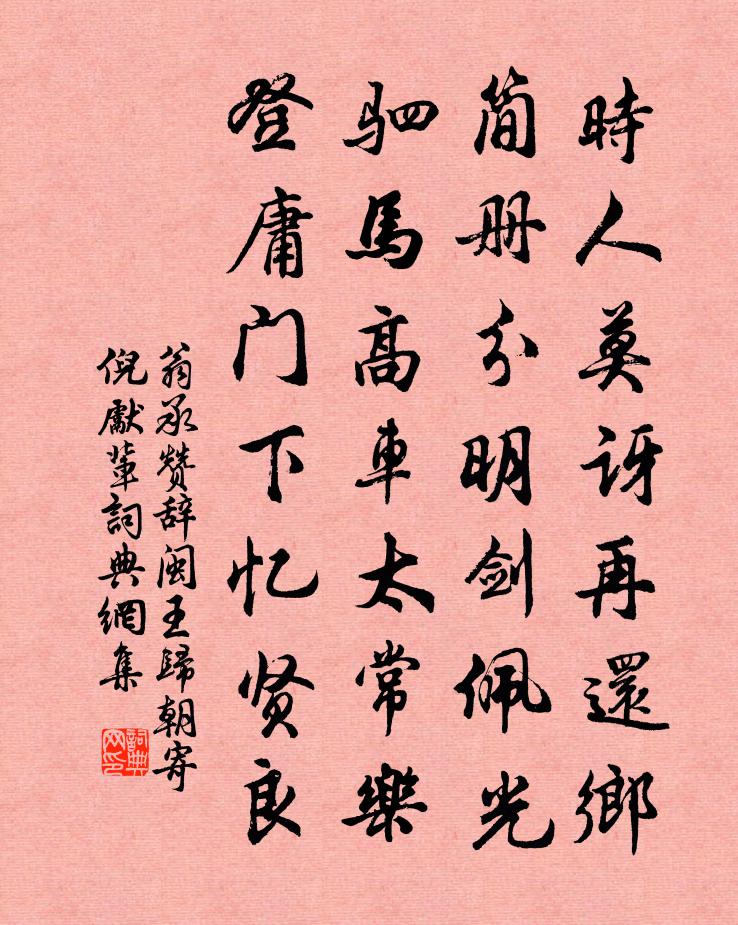 時人莫訝再還鄉
简册分明剑佩光
驷馬高車太常樂
登庸门下忆贤良
翁承赞辞闽王歸朝寄
倪獻輩詞典網集
詞典
网印